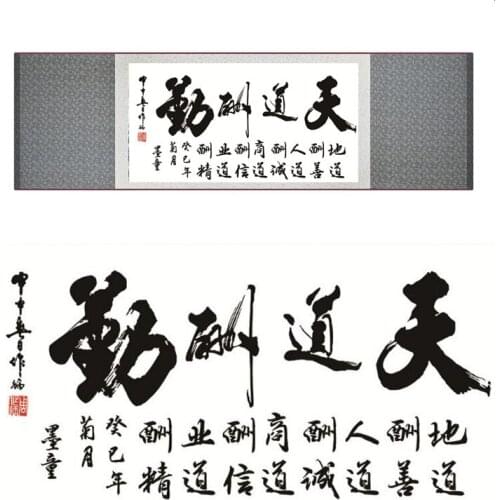 天道酬勤
地道
酬善
人道
酬诚
商道
酬信
业道
酬精
癸巳年
菊月
墨童
天道酬勤
地道
酬善
人道
酬诚
商道
酬信
业道
酬精
癸巳年
菊月
墨童